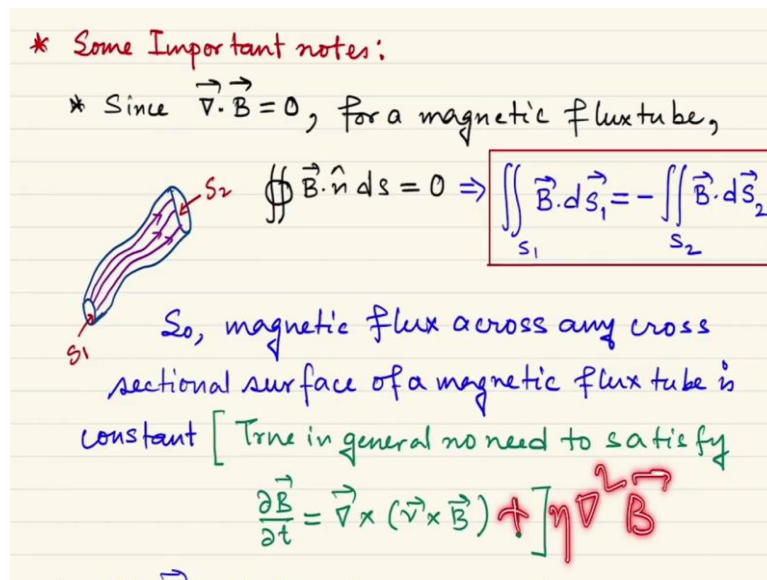 * Some Important notes:
* Since ∇⃗.B⃗ = 0, for a magnetic fluxtube,
∯ B⃗.n̂ ds = 0 ⇒ ∬_{S1} B⃗.dS⃗₁ = - ∬_{S2} B⃗.dS⃗₂
S2
S1
So, magnetic flux across any cross
sectional surface of a magnetic flux tube is
constant [ True in general no need to satisfy
∂B⃗/∂t = ∇⃗ × (v⃗ × B⃗) + ] η∇²B⃗